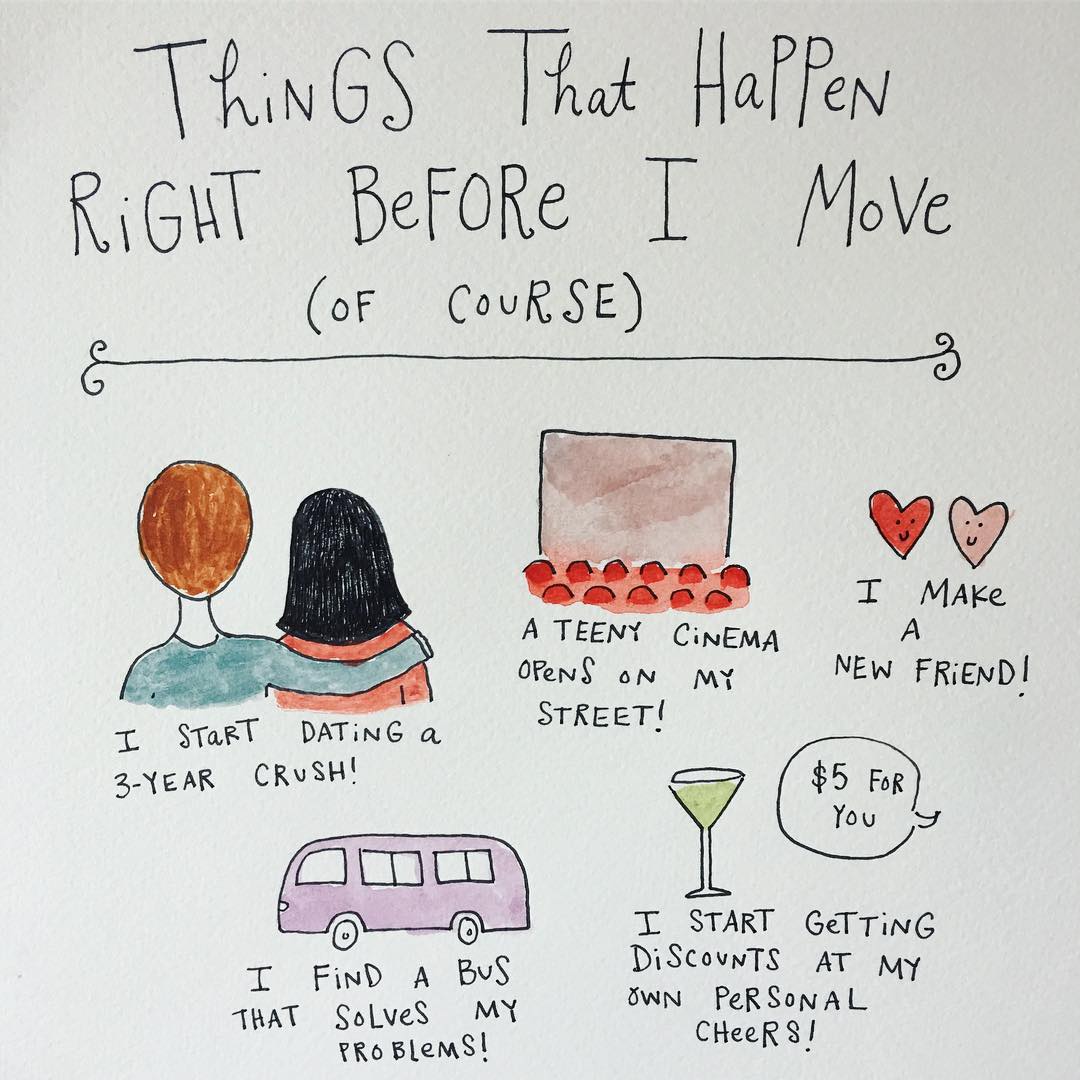 THiNGS That HaPPeN
RiGHT BeFORe I MoVe
(OF COURSE)
I STaRT DATiNG a
3-YEAR CRUSH!
A TEENY CiNEMA
OPeNS ON MY
STREET!
I MAKe
A
NEW FRiEND!
$5 FOR
YOU
I FiND A BUS
THAT SOLVeS MY
PROBLeMS!
I START GeTTiNG
DiSCOUNTS AT MY
OWN PeRSONAL
CHeeRS!